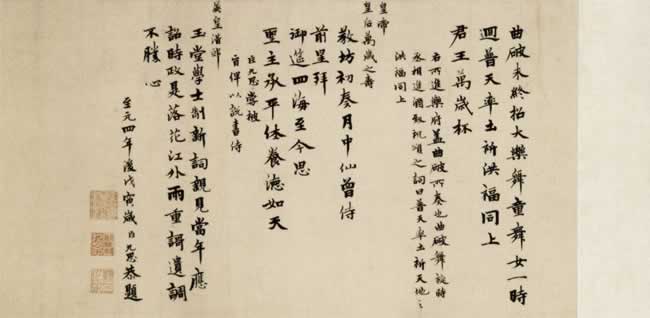 曲破未終拍大樂舞童舞女一時
迴普天率土祈洪福同上
君王萬歲杯
右所進樂府蓋曲破所奏也曲破舞旋時
丞相進酒致祝頌之詞曰普天率土祈天地之
洪福同上
皇帝
皇后萬歲之壽
教坊初奏月中仙曾侍
前星拜
御筵四海至今思
聖主承平休養德如天
臣九思嘗被
旨俾以說書侍
英皇潛邸
玉堂學士制新詞親見當年應
詔時政是落花江外雨重謌遺調
不勝心
至元四年後戊寅歲臣九思恭題